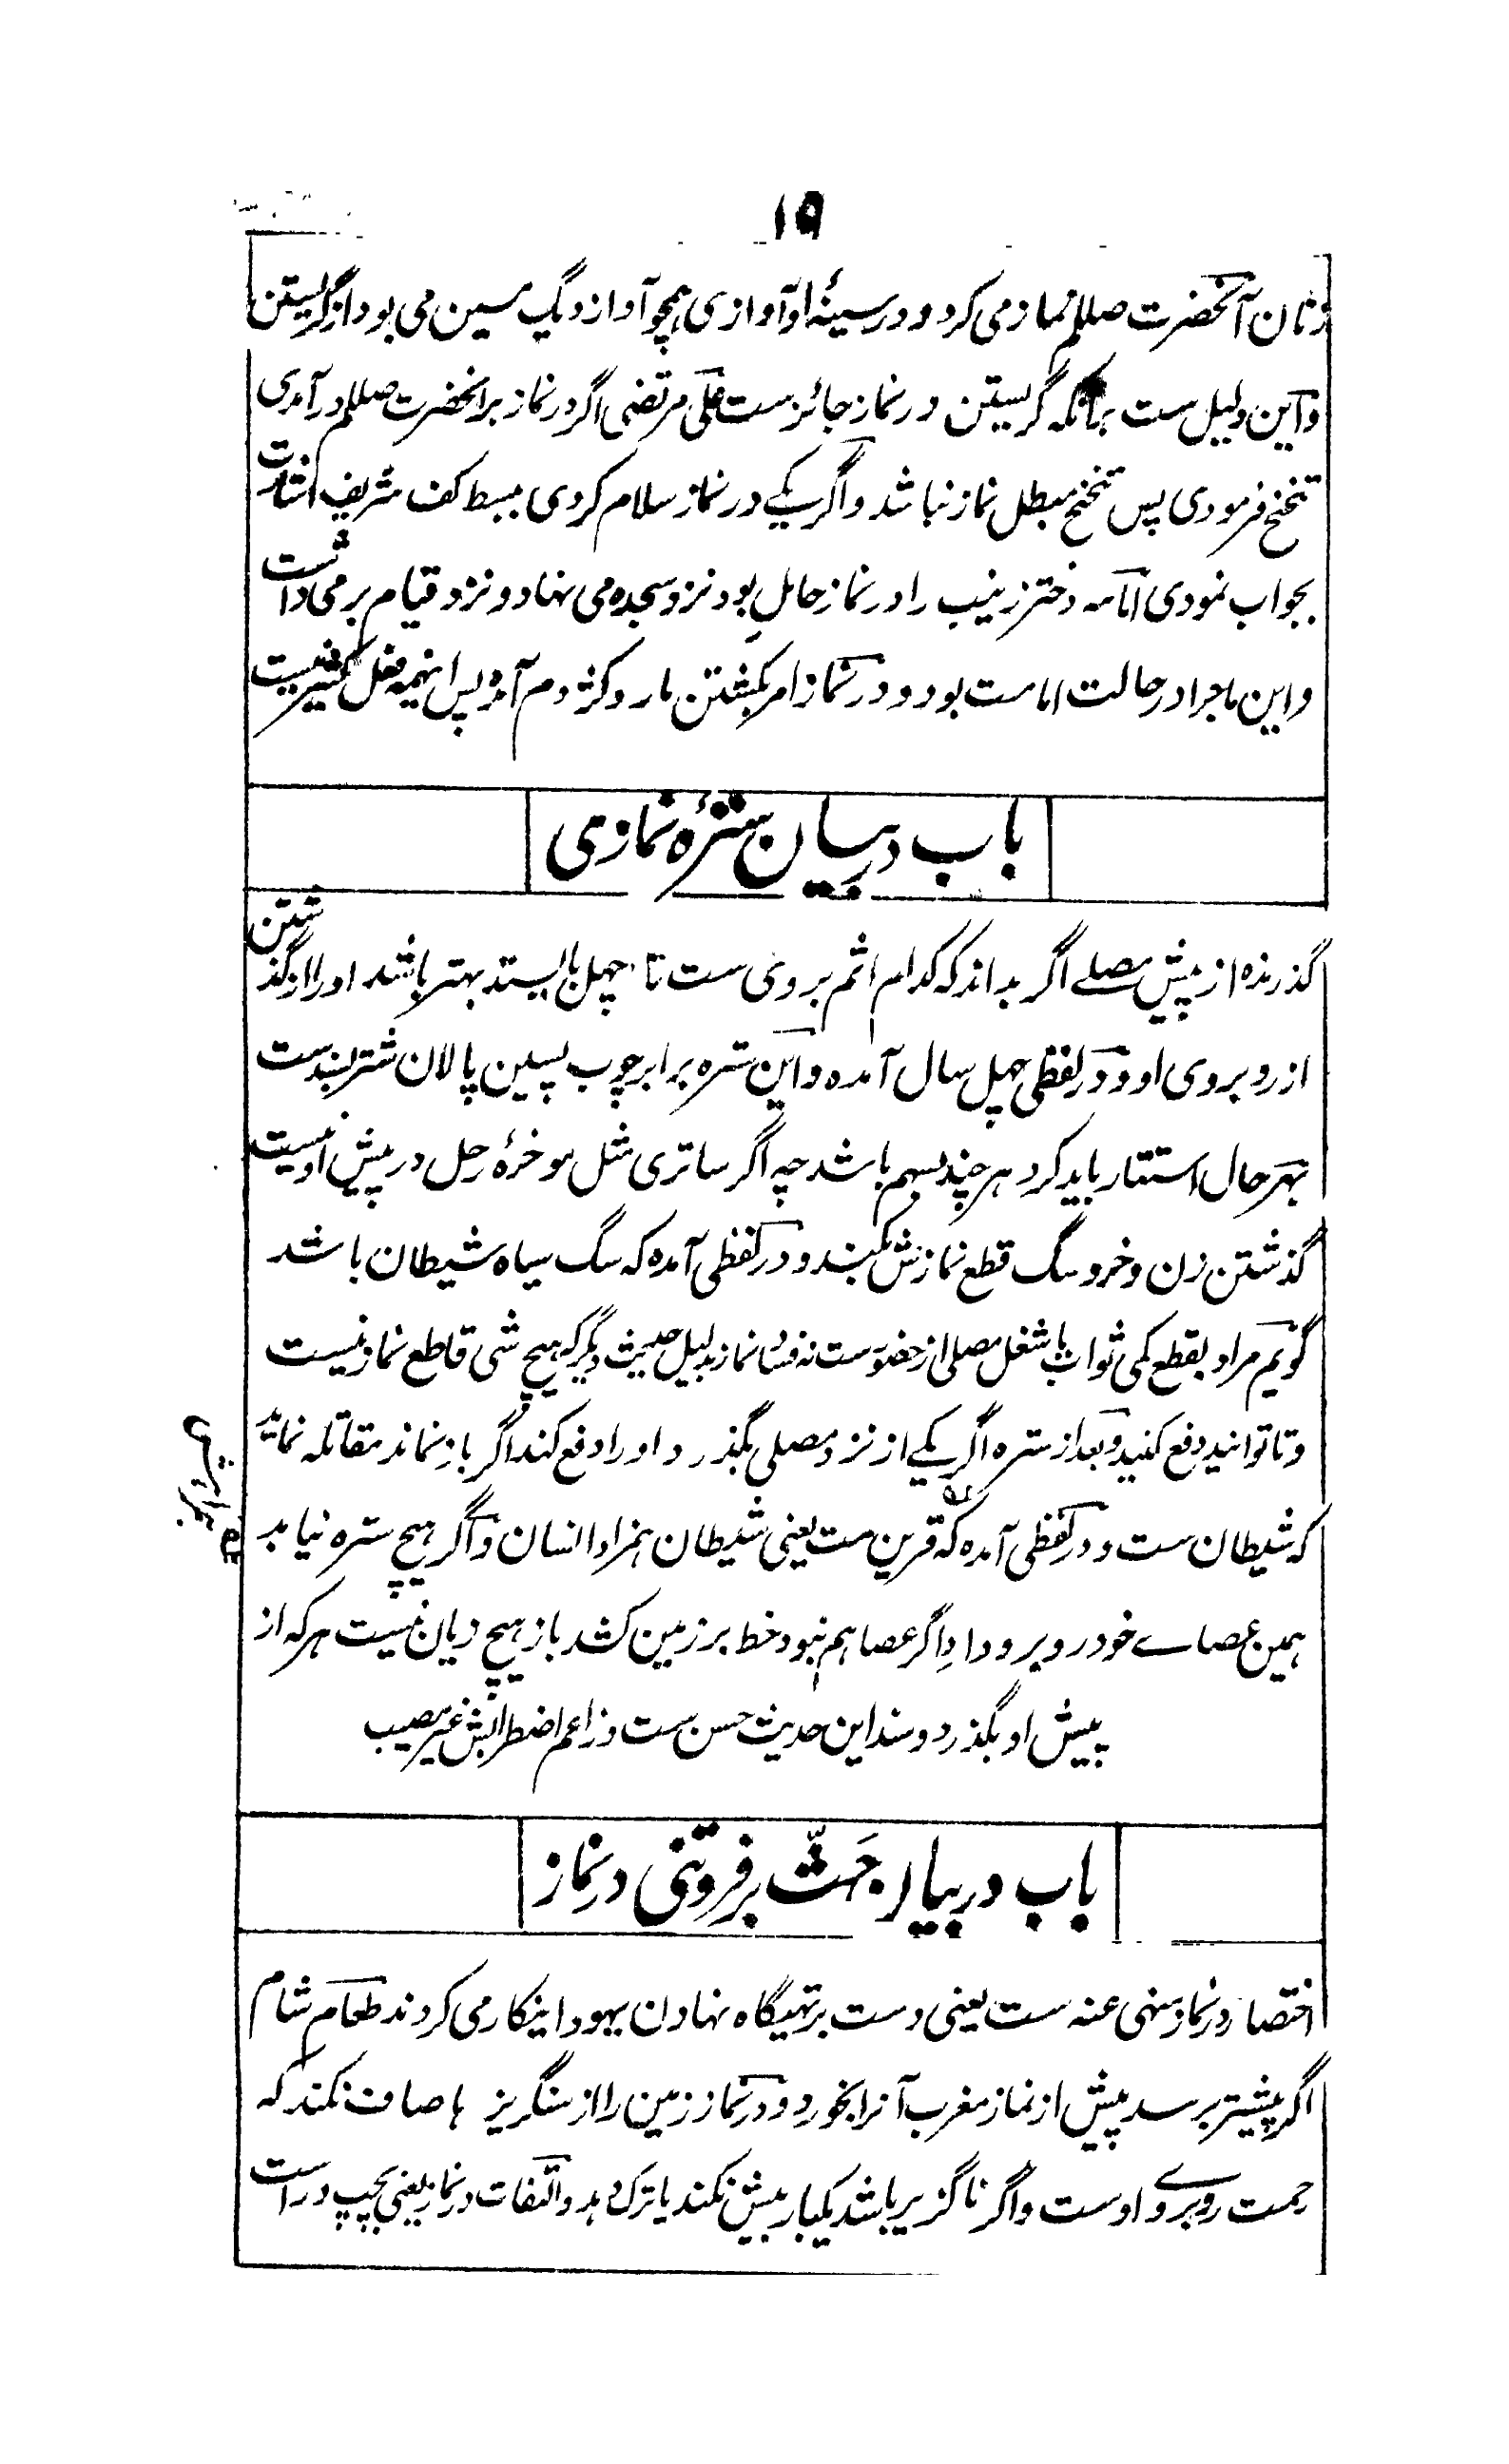 ۱۵
زنان آنحضرت صللم نماز می کرد و در سینۂ او آوازی ہمچو آواز دیگ مسین می بود از گریستن
و این دلیل ست برآنکه گریستن در نماز جائز ست علی مرتضی اگر در نماز بر آنحضرت صللم در آمدی
تنحنح فرمودی پس تنحنح مبطل نماز نباشد و اگر یکے در نماز سلام کردی ببسط کف شریف اشارت
بجواب نمودی امامہ دختر زینب را در نماز حامل بود نزد سجده می نهاد و نزد قیام بر می داشت
و این ماجرا در حالت امامت بود و در نماز امر بکشتن مار و کژدم آمده پس اینہمه فعل کثیر نیست
باب در بیان سترۂ نمازی
گذرنده از پیش مصلے اگر بداند که کدام اثم بروی ست تا چهل بایستد بهتر باشد او را از گذشتن
از روبروی او و در لفظی چهل سال آمده و این ستره برابر چوب پسین پالان شتر بسندست
بهر حال استتار باید کرد هر چند بسهم باشد چه اگر ساتری مثل موخرۂ رحل در پیش او نیست
گذشتن زن و خر و سگ قطع نمازش بکند و در لفظی آمده که سگ سیاه شیطان باشد
گویم مراد بقطع کمی ثواب بشغل مصلی از حضورست نه فساد نماز بدلیل حدیث دیگر که هیچ شی قاطع نماز نیست
و تا توانید دفع کنید و بعد از ستره اگر یکے از نزد مصلی بگذرد او را دفع کند اگر باز نماند مقاتله نماید
که شیطان ست و در لفظی آمده که قرین ست یعنی شیطان همزاد انسان و اگر هیچ ستره نیابد
همین عصاے خود روبرو دارد اگر عصا هم نبود خط بر زمین کشد باز هیچ زیان نیست هر که از
پیش او بگذرد و سند این حدیث حسن ست و زاعم اضطرابش غیر مصیب
باب در بیان حَثّ بر فروتنی در نماز
اختصار در نماز منهی عنه ست یعنی دست بر تهیگاه نهادن یهود اینکار می کردند طعام شام
اگر پیشتر برسد پیش از نماز مغرب آنرا بخورد و در نماز زمین را از سنگریزها صاف نکند که
رحمت روبروے اوست و اگر ناگزیر باشد یکبار بیش نکند یا ترک دهد و التفات در نماز یعنی بچپ و راست